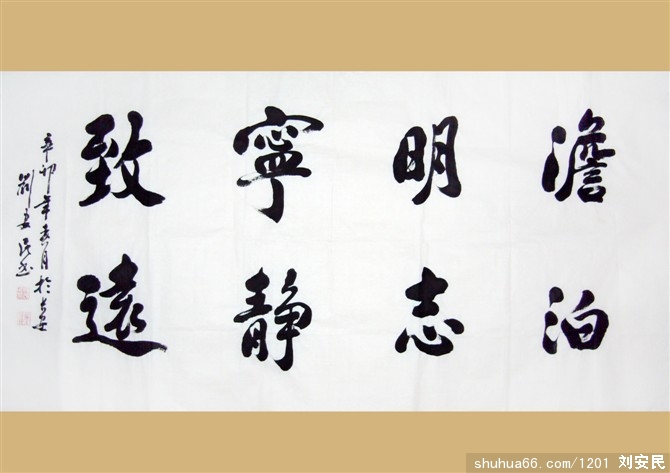 澹泊
明志
寧静
致遠
辛卯年春月於長安
劉安民书
shuhua66.com/1201 刘安民